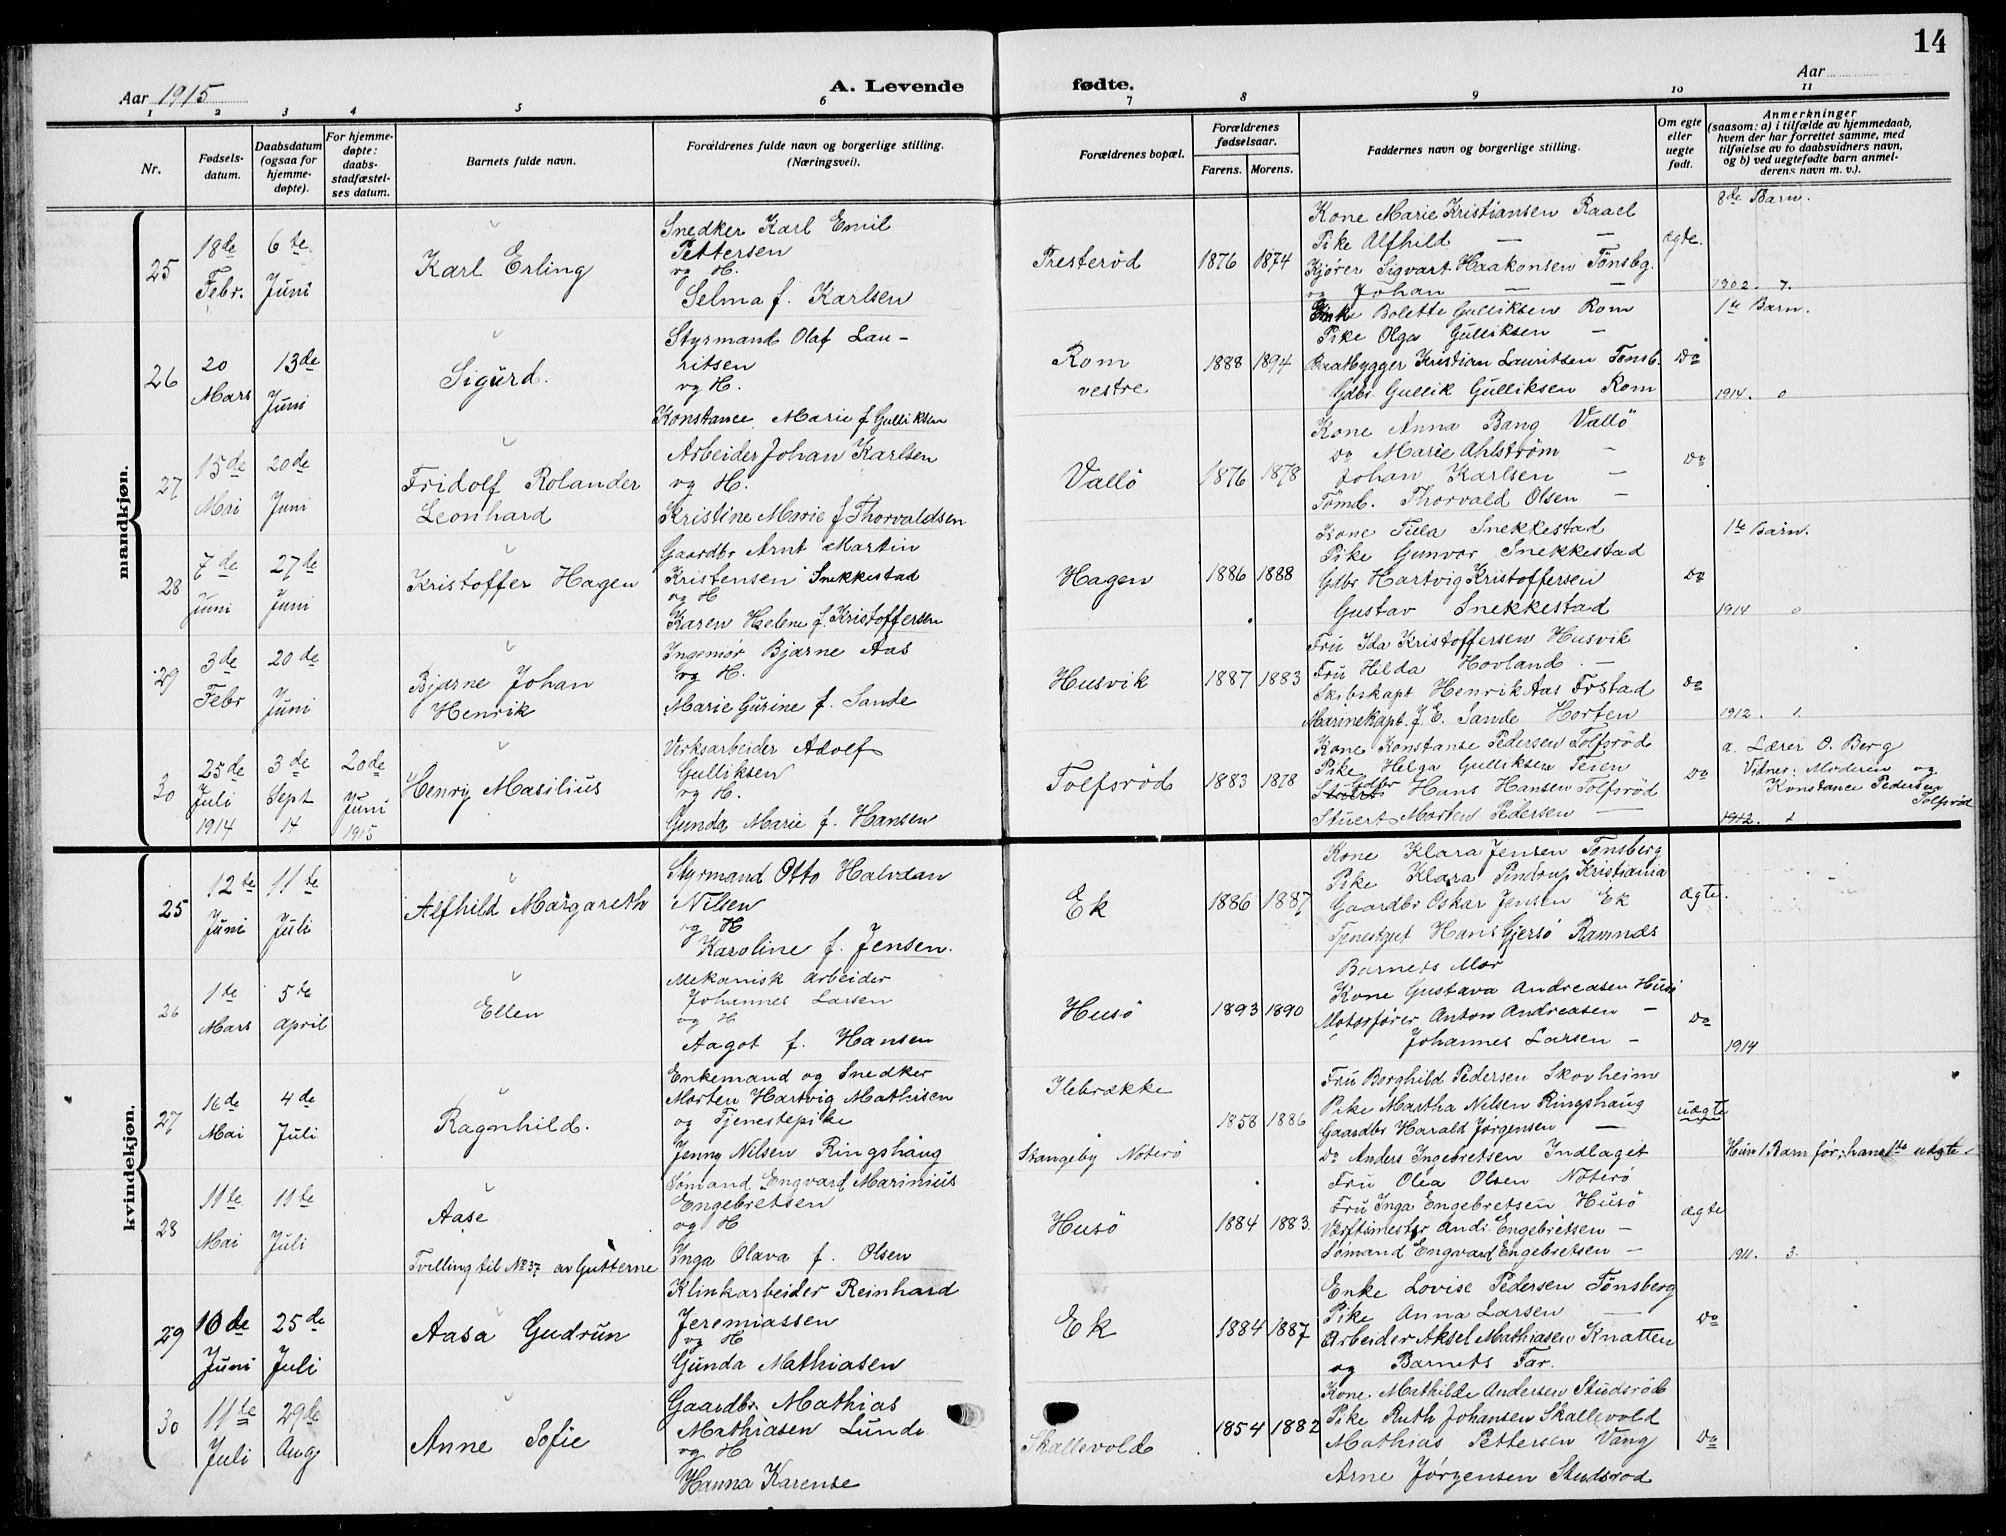 14
Aar 1915
A. Levende fødte.
Aar
1 2 3 4 5 6 7 8 9 10 11
Nr.
Fødsels-
datum.
Daabsdatum
(ogsaa for
hjemme-
døpte).
For hjemme-
døpte:
daabs-
stadfæstel-
ses datum.
Barnets fulde navn.
Forældrenes fulde navn og borgerlige stilling.
(Næringsvei).
Forældrenes bopæl.
Forældrenes
fødselsaar.
Farens. Morens.
Faddernes navn og borgerlige stilling.
Om egte
eller
uegte
født.
Anmerkninger
(saasom: a) i tilfælde av hjemmedaab,
hvem der har forrettet samme, med
tilføielse av to daabsvidners navn,
og b) ved uegtefødte barn anmel-
derens navn m. v.).
mandkjøn.
25
18de
Febr.
6te
Juni
Karl Erling
Snedker Karl Emil
Pettersen
og H.
Selma f. Karlsen
Presterød
1876 1874
Kone Marie Kristiansen Raael
Pike Alfhild — —
Kjører Sigvart Haakonsen Tønsbg.
og Johan — —
ægte.
8de Barn.
1902. 7.
26
20
Mars
13de
Juni
Sigurd.
Styrmand Olaf Lau-
ritsen
og H.
Konstance Marie f Gulliksen
Rom
vestre
1888 1894
Enke Bolette Gulliksen Rom
Pike Olga Gulliksen —
Baatbygger Kristian Lauritsen Tønsb.
Gdbr. Gullik Gulliksen Rom
Do
1te Barn.
1914. 0
27
15de
Mai
20de
Juni
Fridolf Rolander
Leonhard
Arbeider Johan Karlsen
og H.
Kristine Marie f Thorvaldsen
Vallö
1876 1878
Kone Anna Bang Vallö
Do Marie Ahlström —
Johan Karlsen —
Tømb. Thorvald Olsen —
Do
28
7de
Juni
27de
Juni
Kristoffer Hagen
Gaardbr Arnt Martin
Kristensen Snekkestad
og H
Karen Helene f. Kristoffersen
Hagen
1886 1888
Kone Tilla Snekkestad
Pike Gunvor Snekkestad
Gdbr Hartvig Kristoffersen
Gustav Snekkestad
Do
1te Barn.
1914 0
29
3de
Febr
20de
Juni
Bjarne Johan
Henrik
Ingeniør Bjarne Aas
og H.
Marie Gurine f. Sande
Husvik
1887 1883
Fru Ida Kristoffersen Husvik
Fru Hilda Hovland —
Skibskapt Henrik Aas
Marinekapt. J. E. Sande Horten
Do
1912. 1.
30
25de
Juli
1914
3de
Sept
14
20de
Juni
1915
Henry Masilius
Verksarbeider Adolf
Gulliksen
og H.
Gunda Marie f. Hansen
Tolfsrød
1883 1878
Kone Konstanse Pedersen Tolfsrød
Pike Helga Gulliksen Teien
Gdbr Hans Hansen Tolfsrød
Stuert Morten Pedersen —
Do
a. Lærer O. Berg
Vidner: Moderen og
Konstance Pedersen
Tolfsrød
1912.
kvindekjøn.
25
12te
Juni
11te
Juli
Alfhild Margareth
Styrmand Otto Halvdan
Nilsen
og H
Karoline f. Jensen.
Ek
1886 1887
Kone Klara Jensen Tønsberg
Pike Klara Pindrup Kristiania
Gaardbr Oskar Jensen Ek
Tjenestgut Hans Gjersø Ramnæs
ægte.
26
1te
Mars
5te
april
Ellen
Mekanisk arbeider
Johannes Larsen
og H
Aagot f. Hansen
Husö
1893 1890
Barnets Mor
Kone Gustava Andreasen Husö
Motorfører Anton Andreasen —
Johannes Larsen —
Do
1914
27
16de
Mai
4de
Juli
Ragnhild.
Enkemand og Snedker
Morten Hartvig Mathisen
og Tjenestepike
Jenny Nilsen Ringshaug
Ilebrække
Stangeby Nøterø
1858 1886
Fru Borghild Pedersen Skovheim
Pike Martha Nilsen Ringshaug
Gaardbr Harald Jørgensen —
Do Anders Ingebretsen Indlaget
uægte
Hun 1 Barn før, han 1te uægte
28
11te
Mai
11te
Juli
Aase
Tvilling til No 37 av Gutterne
Sømand Engvard Marinius
Engebretsen
og H
Inga Olava f. Olsen
Husö
1884 1883.
Fru Olea Olsen Nøterø
Fru Inga Engebretsen Husö
Værftsmester Andr. Engebretsen —
Sømand Engvard Engebretsen —
ægte
1911. 3.
29
10de
Juni
25de
Juli
Aasa Gudrun
Klinkarbeider Reinhard
Jeremiassen
og H
Gunda Mathiasen
Ek
1884 1887
Enke Lovise Pedersen Tønsberg
Pike Anna Larsen —
Arbeider Aksel Mathiasen Knatten
og Barnets Far.
Do
30
11te
Juli
29de
Aug
Anne Sofie
Gaardbr. Mathias
Mathiasen Lunde
og H
Hanna Karense
Skallevold
1854 1882
Kone Mathilde Andersen Studsrød
Pike Ruth Johansen Skallevold
Mathias Pettersen Vang
Arne Jørgensen Studsrod
Do